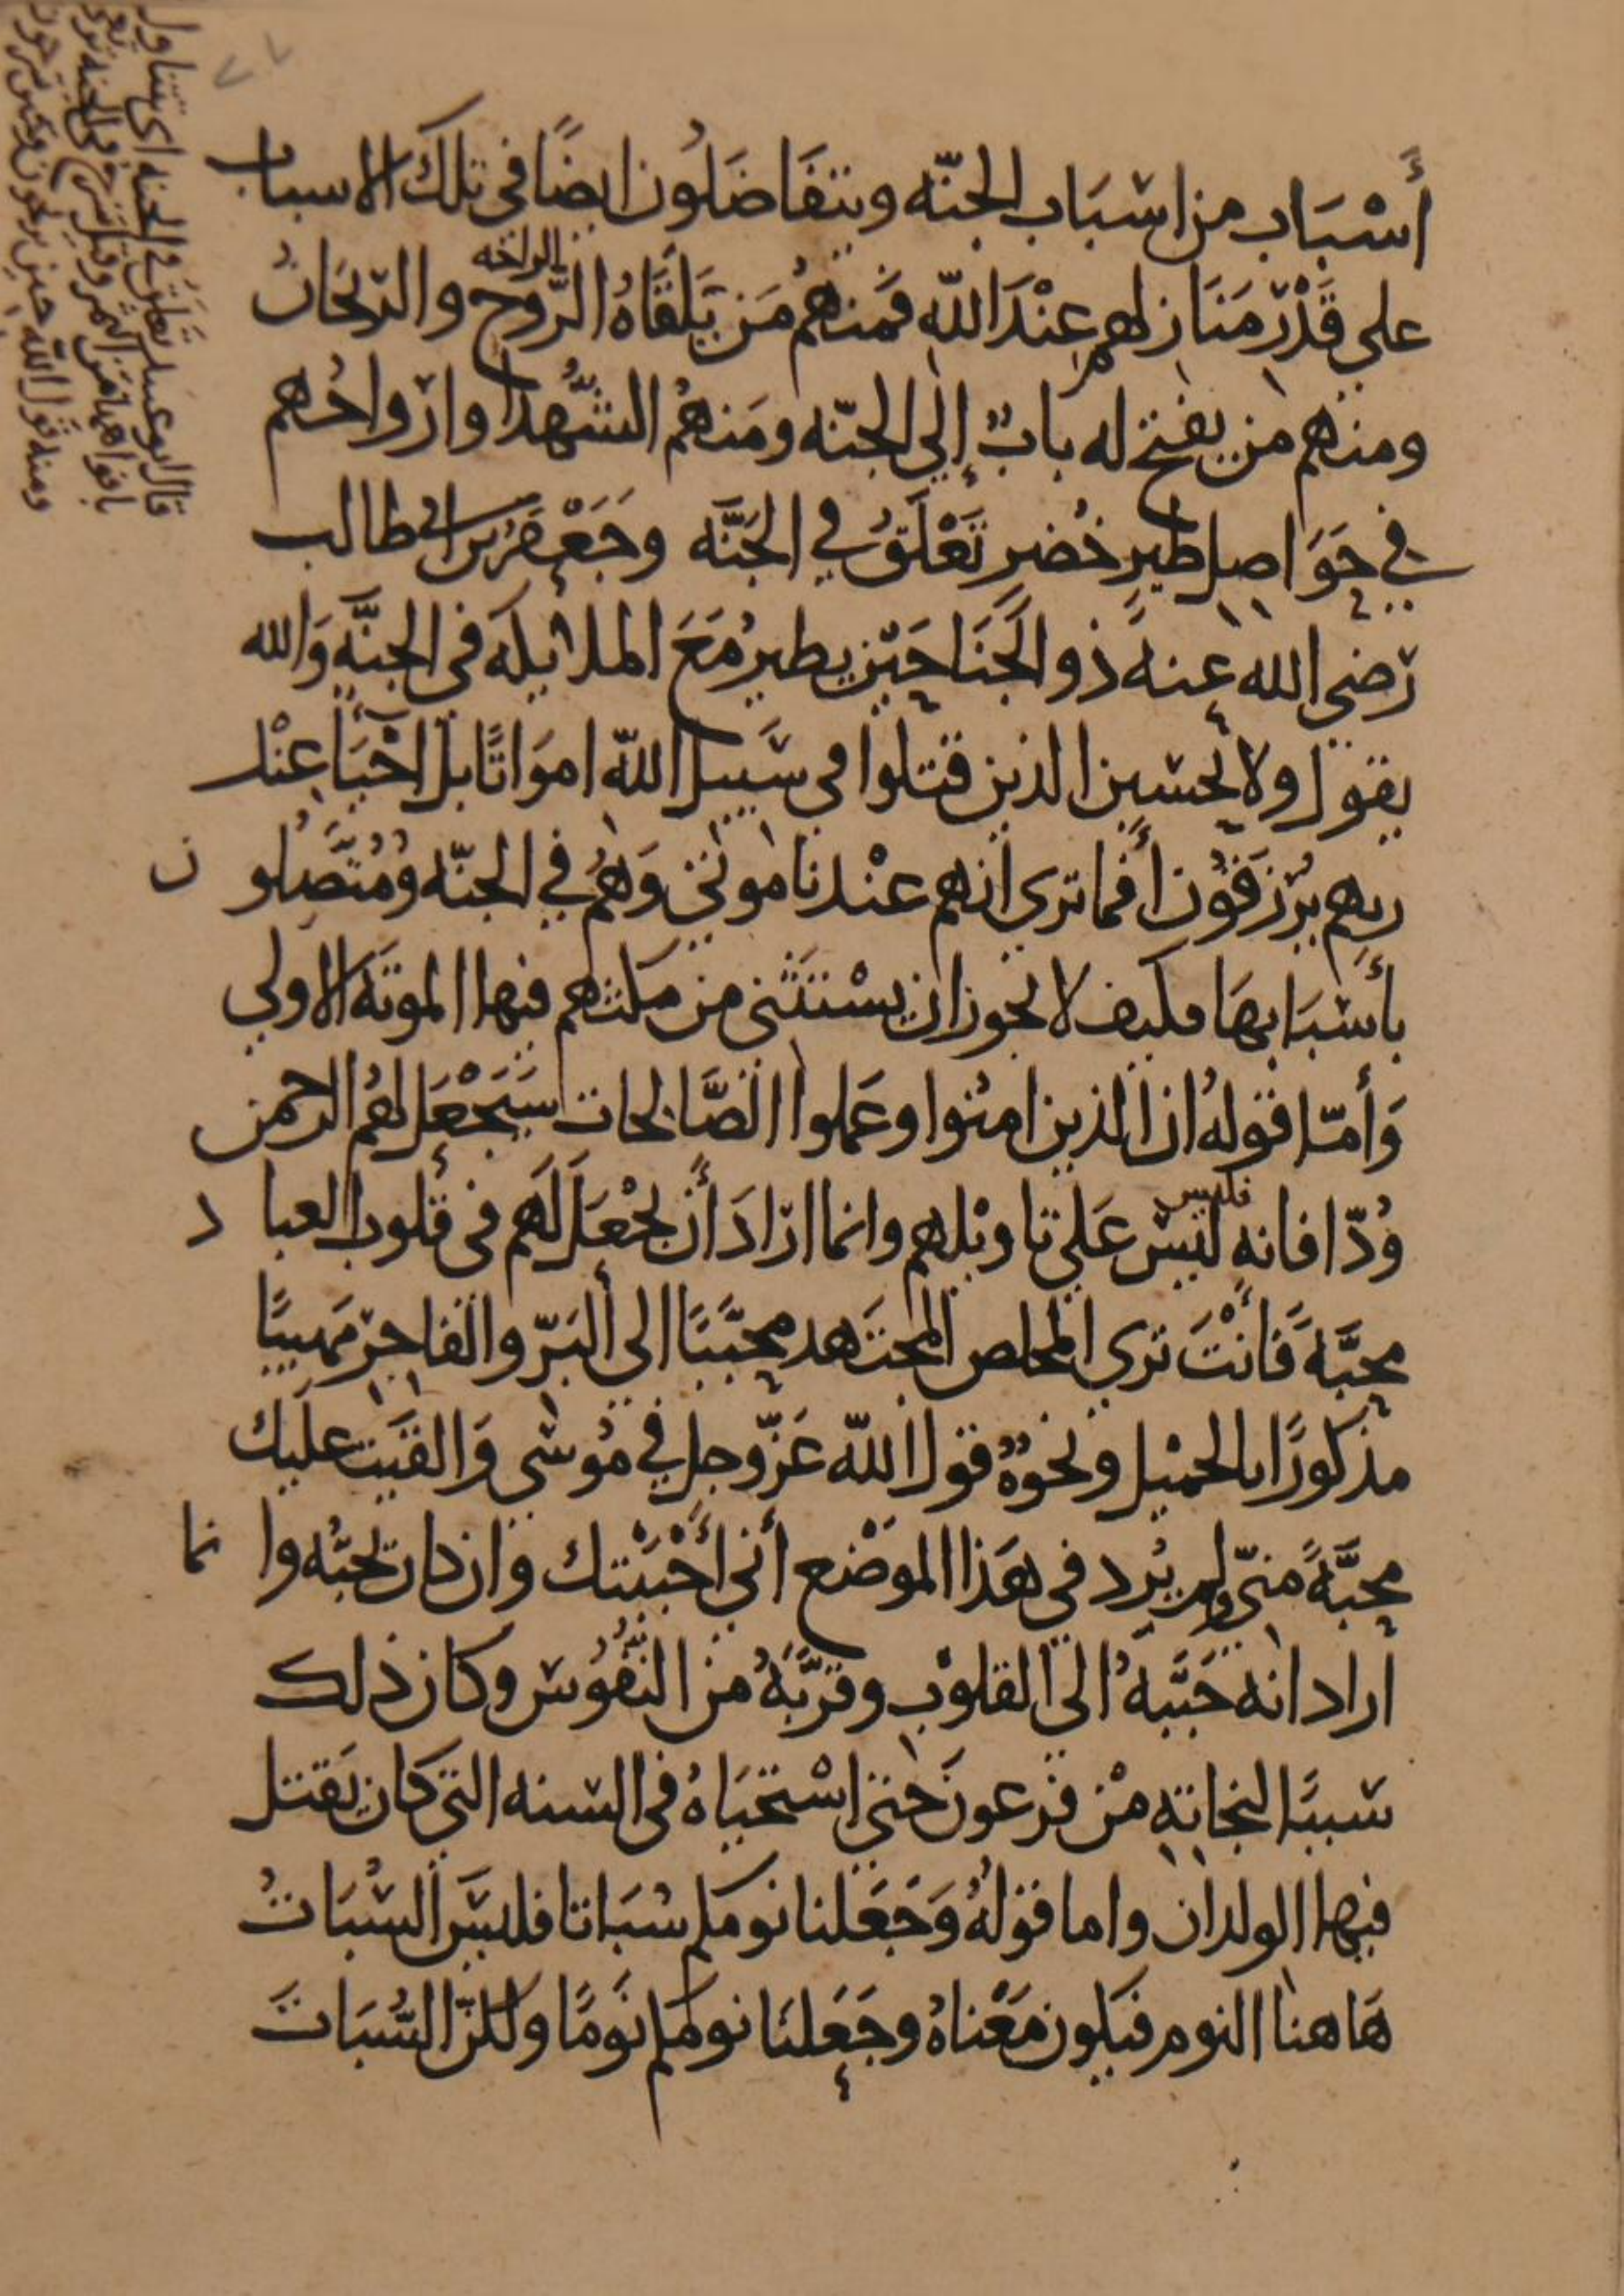 أَسْبَاب من اسبَاب الجنّه ويتفَاضَلُون ايضًا في تلك الاسباب
علي قَدْر مَنَازلهم عِنْدَ الله فمنهُم مَن يَلَقَّاهُ الرَّوح والريحَان
الراحه
ومنهم من يفتح له بابٌ إلي الجنّه ومَنهُم الشُّهدا وارواحُهم
في حَوَاصِل طيرٍ خُضرٍ تَعْلَقُ في الجَنَّه وجَعْفَرُ بن ابي طالب
رضي الله عنهُ ذو الجَنَاحَيْن يطير مَعَ الملايكه في الجنَّه وَالله
يقول ولا تحسبن الذين قتلوا في سَبيل الله امواتًا بل احْيَآ عِنْد
ربهِم يُرْزَقُون أفما تري انهم عنْدنا موتي وَهُم في الجنّه ومُتَّصِلُون
بأسْبَابهَا فكيف لا يجوز ان يسْتَثني من مكثهم فيها الموتَه الاولي
وَأمّا قولهُ ان الذين امنُوا وعَملوا الصَّالحات سَيَجْعَل لهُم الرحمن
وُدّا فانه ليس عَلي تاويلهم وانما ارَادَ أن يجْعَلَ لَهم في قلوب العباد
فليس
محبَّةً فَانْتَ تري المخلص المجتهد محبَّبًا الي البَرّ والفاجر مَهيبًا
مذكورًا بالجميل ونحْوهُ قول الله عَزّ وجل في مُوسي وَالقَيت عليك
محبَّةً منّي ولم يُرد في هَذا الموَضْع أني أحْبَبْتك وان كان يحبُّه وانما
اراد انه حَبَّبهُ الي القلوْب وقرَّبَهُ من النُّفُوس وكان ذلك
سببًا لنجاته مْن فرعونَ حتي اسْتحْيَاهُ في السنه التي كان يَقتل
فيها الولدان واما قولهُ وَجَعَلنا نومكم سُبَاتا فليسَ السُّبَاتُ
هَاهنا النوم فيكون مَعْناهُ وجَعَلنَا نومكم نَومًا ولكنّ السُّبَاتَ
قال ابو عبيد تَعلَق في الجنه اي تتناول
بافواهها من الثمر
ومنه قول الله حين تريحون وحين تسرحون